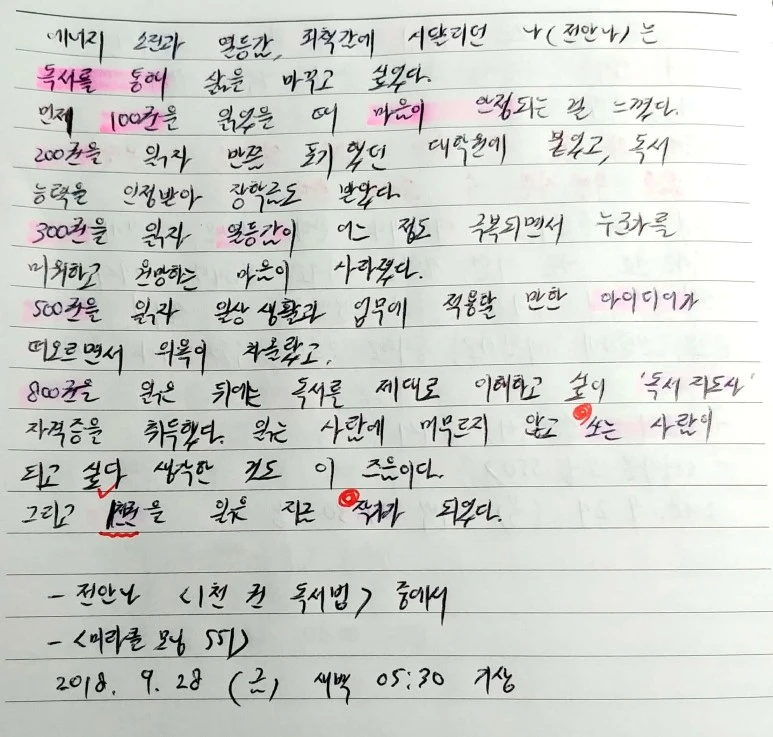 에너지 소진과 열등감, 죄책감에 시달리던 나(전안나)는
독서를 통해 삶을 바꾸고 싶었다.
먼저 100권을 읽었을 때 마음이 안정되는 걸 느꼈다.
200권을 읽자 반쯤 포기했던 대학원에 붙었고, 독서
능력을 인정받아 장학금도 받았다.
300권을 읽자 열등감이 어느 정도 극복되면서 누군가를
미워하고 원망하는 마음이 사라졌다.
500권을 읽자 일상 생활과 업무에 적용할 만한 아이디어가
떠오르면서 의욕이 차올랐고,
800권을 읽은 뒤에는 독서를 제대로 이해하고 싶어 '독서 지도사'
자격증을 취득했다. 읽는 사람에 머무르지 않고 쓰는 사람이
되고 싶다 생각한 것도 이 즈음이다.
그리고 1천권을 읽은 지금 작가가 되었다.
- 전안나 <1천 권 독서법> 중에서
- <미라클 모닝 551>
2018. 9. 28 (금) 새벽 05:30 기상